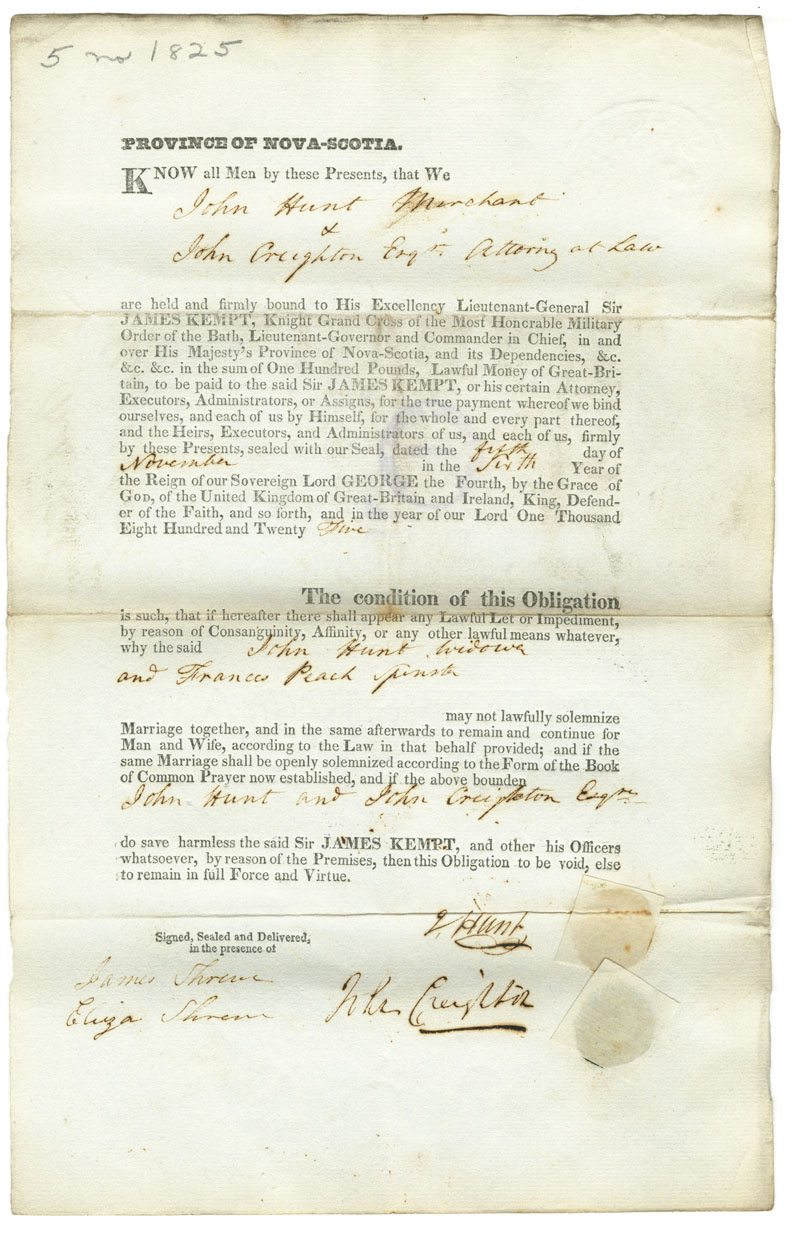 5 no 1825
PROVINCE OF NOVA-SCOTIA.
KNOW all Men by these Presents, that We
John Hunt Merchant
&
John Creighton Esqr. Attorney at Law
are held and firmly bound to His Excellency Lieutenant-General Sir
JAMES KEMPT, Knight Grand Cross of the Most Honorable Military
Order of the Bath, Lieutenant-Governor and Commander in Chief, in and
over His Majesty's Province of Nova-Scotia, and its Dependencies, &c.
&c. &c. in the sum of One Hundred Pounds, Lawful Money of Great-Bri-
tain, to be paid to the said Sir JAMES KEMPT, or his certain Attorney,
Executors, Administrators, or Assigns, for the true payment whereof we bind
ourselves, and each of us by Himself, for the whole and every part thereof,
and the Heirs, Executors, and Administrators of us, and each of us, firmly
by these Presents, sealed with our Seal, dated the fifth day of
November in the Sixth Year of
the Reign of our Sovereign Lord GEORGE the Fourth, by the Grace of
GOD, of the United Kingdom of Great-Britain and Ireland, King, Defend-
er of the Faith, and so forth, and in the year of our Lord One Thousand
Eight Hundred and Twenty Five
The condition of this Obligation
is such, that if hereafter there shall appear any Lawful Let or Impediment,
by reason of Consanguinity, Affinity, or any other lawful means whatever,
why the said John Hunt widower
and Frances Peach Spinster
may not lawfully solemnize
Marriage together, and in the same afterwards to remain and continue for
Man and Wife, according to the Law in that behalf provided; and if the
same Marriage shall be openly solemnized according to the Form of the Book
of Common Prayer now established, and if the above bounden
John Hunt and John Creighton Esqrs
do save harmless the said Sir JAMES KEMPT, and other his Officers
whatsoever, by reason of the Premises, then this Obligation to be void, else
to remain in full Force and Virtue.
J Hunt
Signed, Sealed and Delivered,
in the presence of
James Shreve
Eliza Shreve
John Creighton